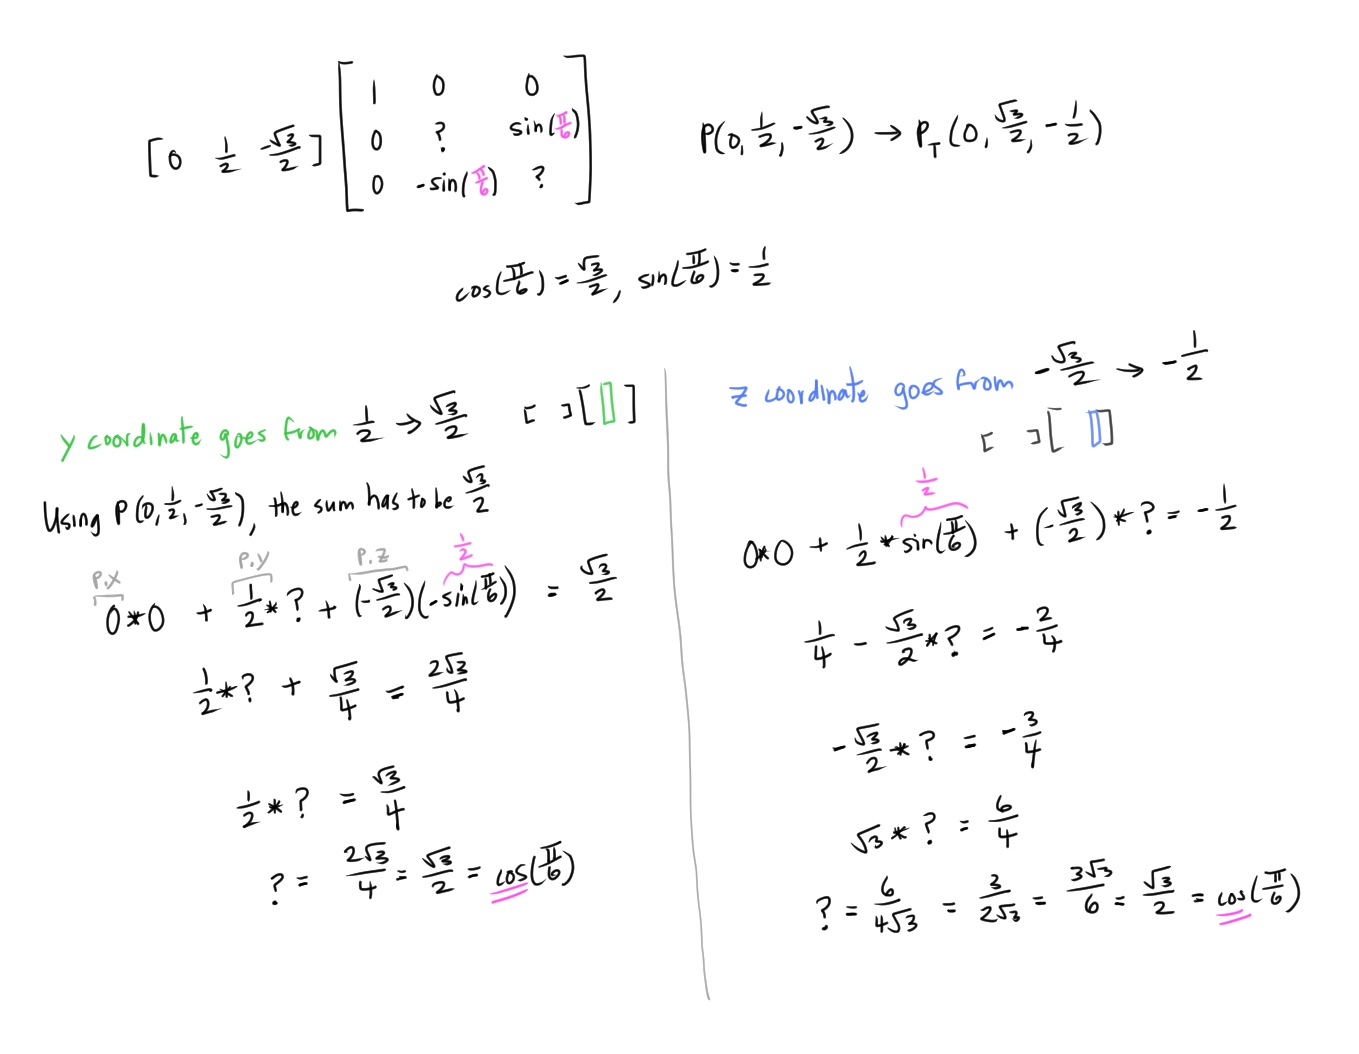 [0 1/2 -√3/2] [1 0 0
0 ? sin(π/6)
0 -sin(π/6) ?]
P(0, 1/2, -√3/2) → P_T(0, √3/2, -1/2)
cos(π/6) = √3/2, sin(π/6) = 1/2
y coordinate goes from 1/2 → √3/2 [ ][ [] ]
Using P(0, 1/2, -√3/2), the sum has to be √3/2
P.X P.Y P.Z 1/2
0*0 + 1/2*? + (-√3/2)(-sin(π/6)) = √3/2
1/2*? + √3/4 = 2√3/4
1/2*? = √3/4
? = 2√3/4 = √3/2 = cos(π/6)
z coordinate goes from -√3/2 → -1/2
[ ][ [] ]
1/2
0*0 + 1/2*sin(π/6) + (-√3/2)*? = -1/2
1/4 - √3/2*? = -2/4
-√3/2*? = -3/4
√3*? = 6/4
? = 6/4√3 = 3/2√3 = 3√3/6 = √3/2 = cos(π/6)